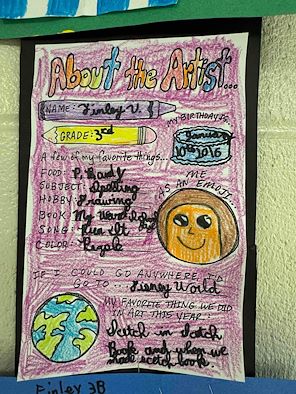 About the Artist...
NAME: Finley V.
MY BIRTHDAY IS:
GRADE: 3rd
January
10th 2016
A few of my favorite things...
ME
AS AN EMOJI...
FOOD:
SUBJECT: Spelling
HOBBY: Drawing
BOOK: My Weird School
SONG: Run It
COLOR: Purple
IF I COULD GO ANYWHERE, I'D
GO TO... Disney World
MY FAVORITE THING WE DID
IN ART THIS YEAR:
Scetch in Scetch
Book and when we
made scetch book.
Finley 3B